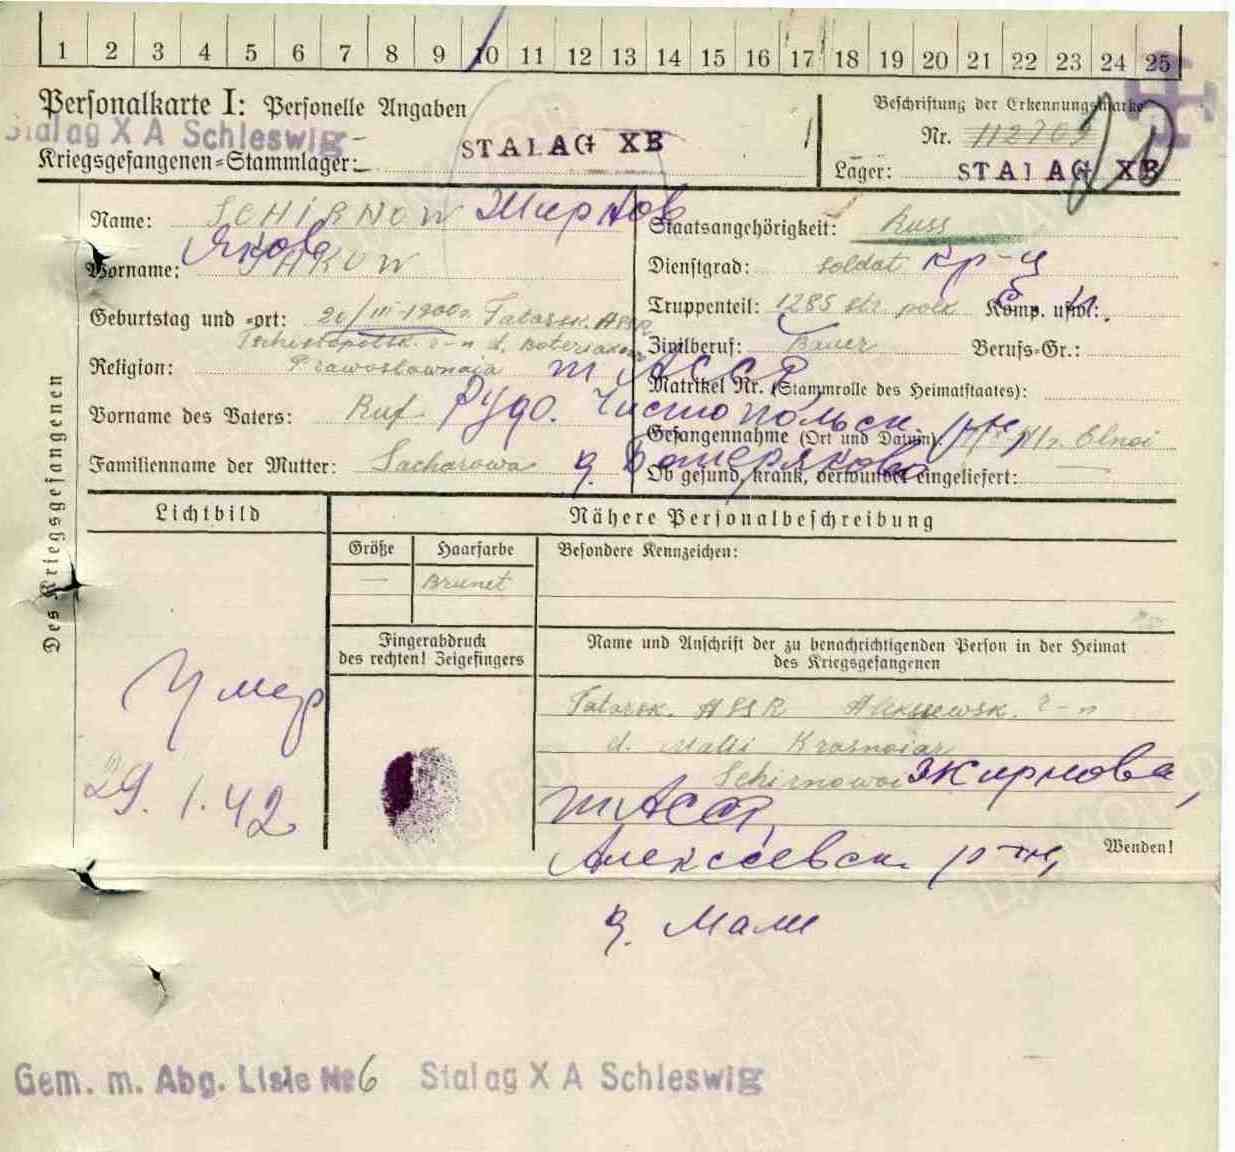 1 2 3 4 5 6 7 8 9 10 11 12 13 14 15 16 17 18 19 20 21 22 23 24 25
Personalkarte I: Personelle Angaben
Beschriftung der Erkennungsmarke
Stalag X A Schleswig
Nr. 112709
Kriegsgefangenen-Stammlager: STALAG XB
Lager: STALAG XB
Name: SCHIRNOW Жирнов
Staatsangehörigkeit: Russ
Яков
Vorname: JAKOW
Dienstgrad: Soldat кр-ц
Geburtstag und -ort: 20/III-1900г. Tatarsk. ASSR
Truppenteil: 1285 str. polk Komp. usw.:
Zivilberuf: Bauer Berufs-Gr.:
Religion: Prawoslawnaja т АССР
Matrikel Nr. (Stammrolle des Heimatstaates):
Vorname des Vaters: Ruf Чистопольск
Gefangennahme (Ort und Datum):
Familienname der Mutter: Sacharowa д. Ботеряково
Ob gesund, krank, verwundet eingeliefert: —
Des Kriegsgefangenen
Lichtbild
Nähere Personalbeschreibung
Größe Haarfarbe Besondere Kennzeichen:
— Brunet
Fingerabdruck
des rechten! Zeigefingers
Name und Anschrift der zu benachrichtigenden Person in der Heimat
des Kriegsgefangenen
Умер
29.1.42
Tatarsk. ASSR Aleksiewsk. r-n
d. Malii Krasnoiar
Schirnowoi Жирнова,
т АССР,
Алексеевск р-н,
Wenden!
д. Мали
Gem. m. Abg. Liste № 6 Stalag X A Schleswig